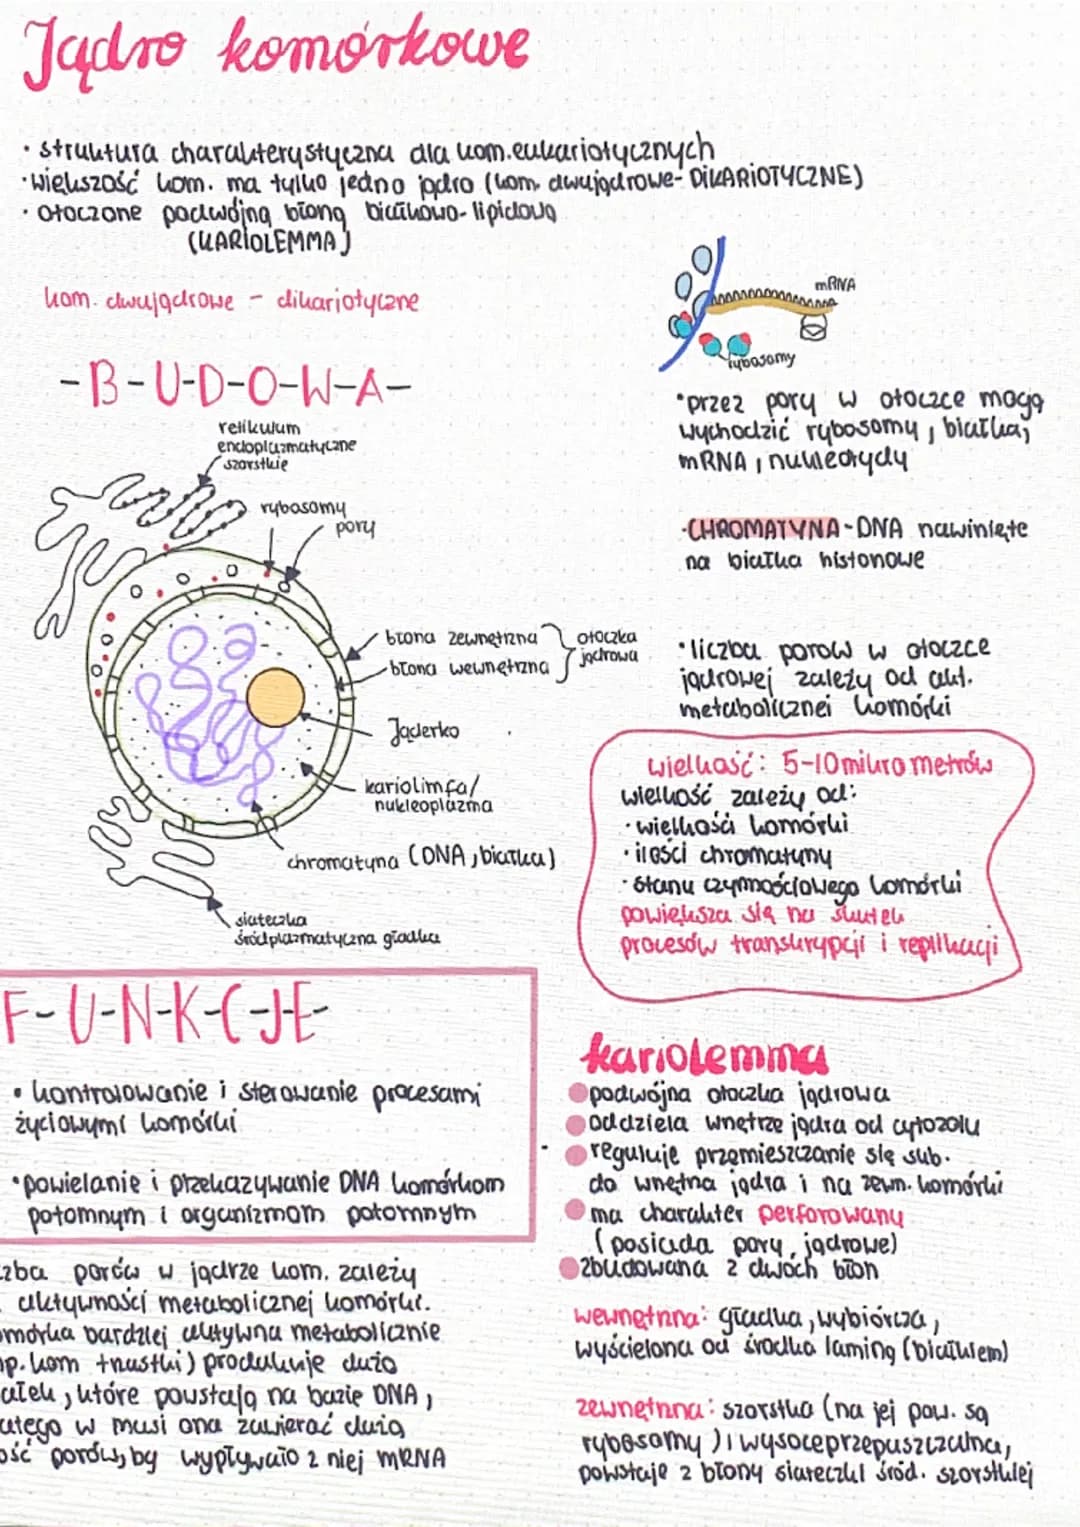 Jądro komórkowe
• struktura charakterystyczna dla kom. eukariotycznych
• większość kom. ma tylko jedno jądro (kom. dwujądrowe - DIKARIOTYCZNE)
• otoczone podwójną błoną białkowo-lipidową
(KARIOLEMMA)
kom. dwujądrowe - dikariotyczne
-B-U-D-O-W-A-
retikulum
endoplazmatyczne
szorstkie
rybosomy
pory
błona zewnętrzna
błona wewnętrzna
otoczka
jądrowa
Jąderko
kariolimfa/
nukleoplazma
chromatyna (DNA, białka)
siateczka
śródplazmatyczna gładka
mRNA
rybosomy
• przez pory w otoczce mogą
wychodzić rybosomy, białka,
mRNA, nukleotydy
• CHROMATYNA - DNA nawinięte
na białka histonowe
• liczba porów w otoczce
jądrowej zależy od akt.
metabolicznej komórki
wielkość: 5-10 mikrometrów
wielkość zależy od:
• wielkości komórki
• ilości chromatyny
• stanu czynnościowego komórki
powiększa się na skutek
procesów transkrypcji i replikacji
F-U-N-K-C-J-E-
• kontrolowanie i sterowanie procesami
życiowymi komórki
• powielanie i przekazywanie DNA komórkom
potomnym i organizmom potomnym
zba porów w jądrze kom. zależy
aktywności metabolicznej komórki.
omórka bardziej aktywna metabolicznie
p. kom trzustki) produkuje dużo
ałek, które powstają na bazie DNA,
atego w musi ona zawierać dużą
ość porów, by wypływało z niej mRNA
kariolemma
podwójna otoczka jądrowa
oddziela wnętrze jądra od cytozolu
reguluje przemieszczanie się sub.
do wnętrza jądra i na zewn. komórki
ma charakter perforowany
(posiada pory jądrowe)
zbudowana z dwóch błon
wewnętrzna: gładka, wybiórcza,
wyścielona od środka laminą (białkiem)
zewnętrzna: szorstka (na jej pow. są
rybosomy) i wysoceprzepuszczalna,
powstaje z błony siateczki śród. szorstkiej